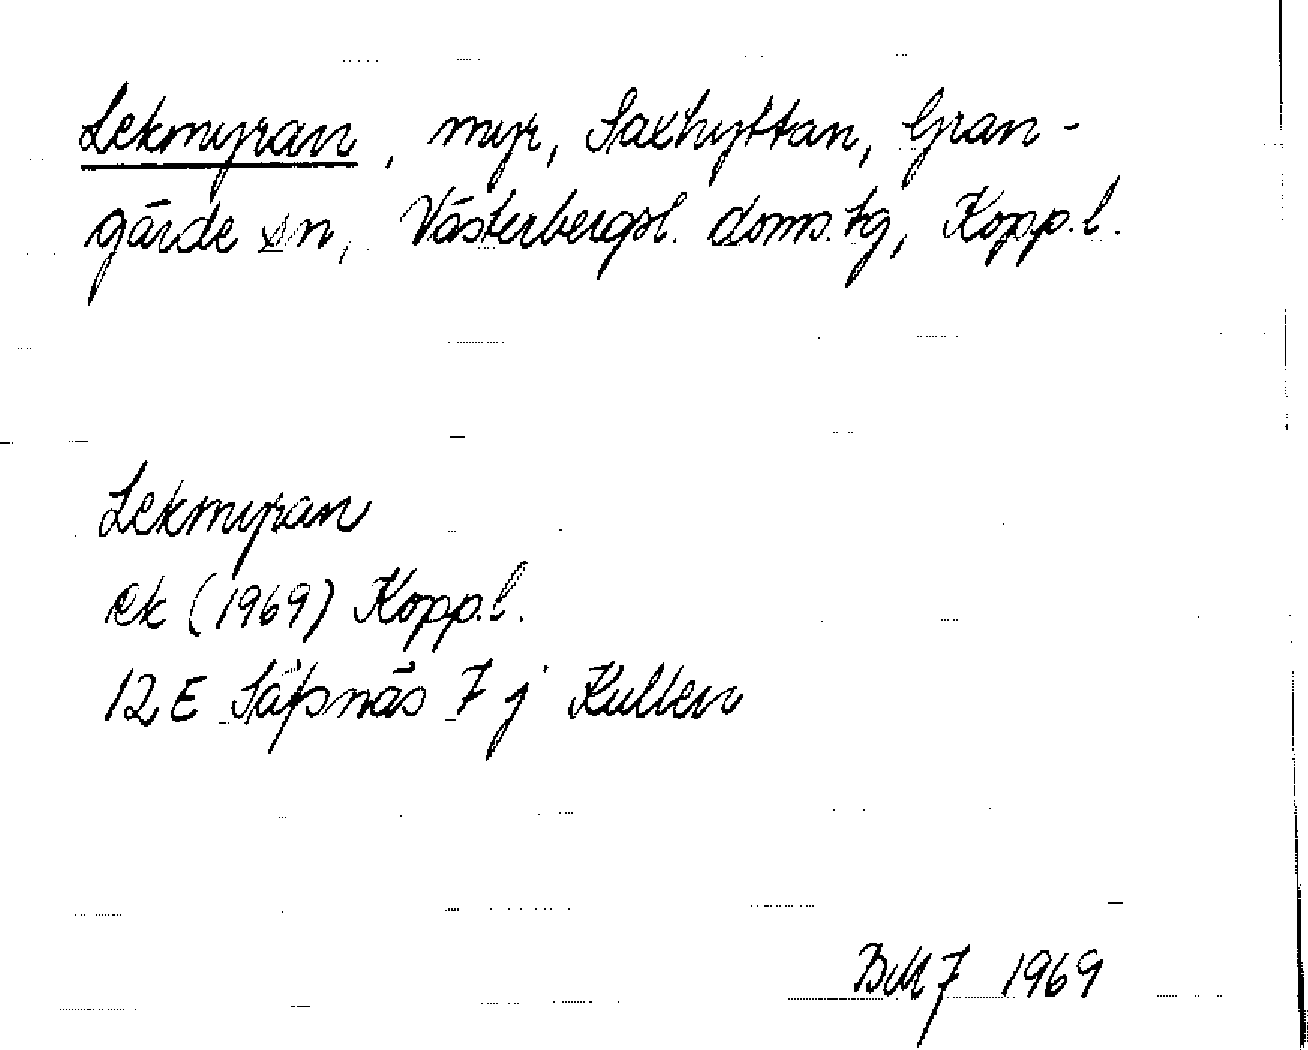 Lekmyran, myr, Saxhyttan, Gran-
gärde sn, Västerbergsl. doms.tg, Kopp.l.
Lekmyran
ek (1969) Kopp.l.
12E Säfsnäs 7 j Kullen
BMJ 1969